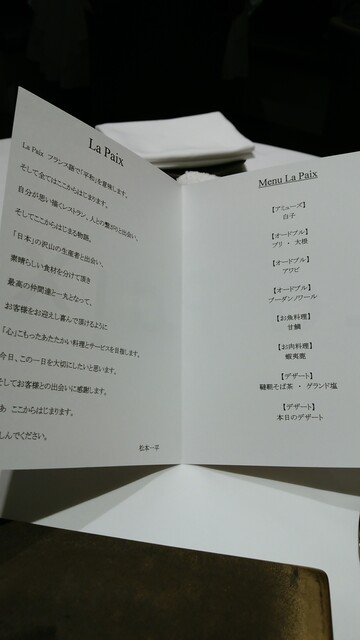 La Paix
La Paix フランス語で「平和」を意味します。
そして全てはここからはじまります。
自分が思い描くレストラン、人との繋がりと出会い、
そしてここからはじまる物語。
「日本」の沢山の生産者と出会い、
素晴らしい食材を分けて頂き
最高の仲間達と一丸となって、
お客様をお迎えし喜んで頂けるように
「心」こもったあたたかい料理とサービスを目指します。
今日、この一日を大切にしたいと思います。
そしてお客様との出会いに感謝します。
あ ここからはじまります。
しんでください。
松本一平
Menu La Paix
【アミューズ】
白子
【オードブル】
ブリ ・ 大根
【オードブル】
アワビ
【オードブル】
ブーダンノワール
【お魚料理】
甘鯛
【お肉料理】
蝦夷鹿
【デザート】
韃靼そば茶 ・ ゲランド塩
【デザート】
本日のデザート